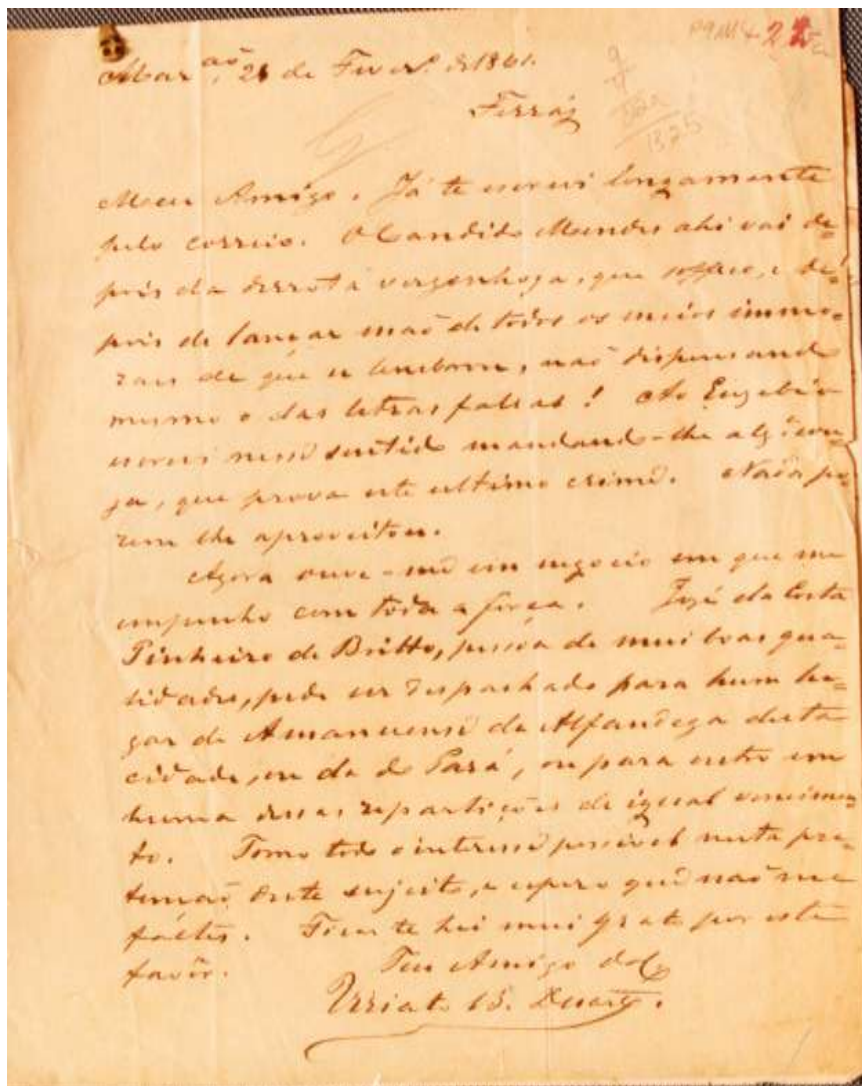 P9M4 22
Mar.ão, 21 de Fever.º de 1861.
Ferráz
1875
Meu Amigo. Já te escrevi longamente
pelo correio. O Candido Mendes ahi vai de-
pois da derrota vergonhoza, que soffreo, e de-
pois de lançar mão de todos os meios immo-
raes de que se lembrou, não dispensando
mesmo o das letras falsas! Ao Euzebio
escrevi nesse sentido mandando-lhe
ja, que prova este ultimo crime. Nada po-
rem lhe aproveitou.
Agora ouve-me em negocio em que me
empenho com toda a força. José da Costa
Pinheiro de Britto, pessoa de mui boas qua-
lidades, pede ser despachado para hum lu-
gar de Amanuense da Alfandega desta
cidade, ou da do Pará, ou para outro em
huma dessas repartições de igual vencimen-
to. Tomo todo o interesse possivel nesta pre-
tenção deste sujeito, e espero que não me
faltes. Ficar te hei mui grato por este
favor.
Teu Amigo
Viriato B. Duarte.